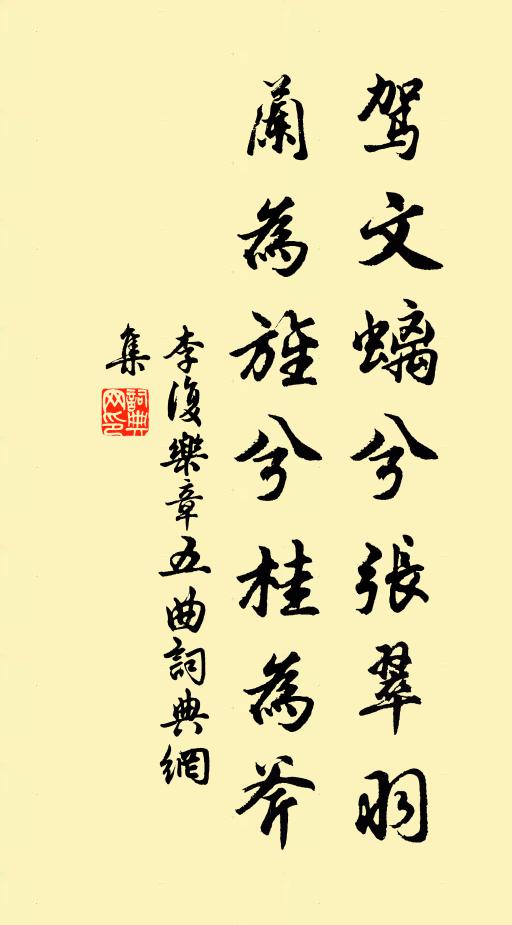 駕文螭兮張翠羽
蘭為旌兮桂為斧
李復樂章五曲詞典網
集
詞典網印